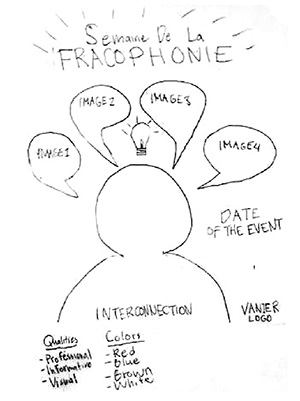 Semaine De La
FRACOPHONIE
IMAGE1
IMAGE2
IMAGE3
IMAGE4
DATE
OF THE EVENT
INTERCONNECTION
VANIER
LOGO
Qualities
- Professional
- Informative
- Visual
Colors
- Red
- Blue
- Brown
- White